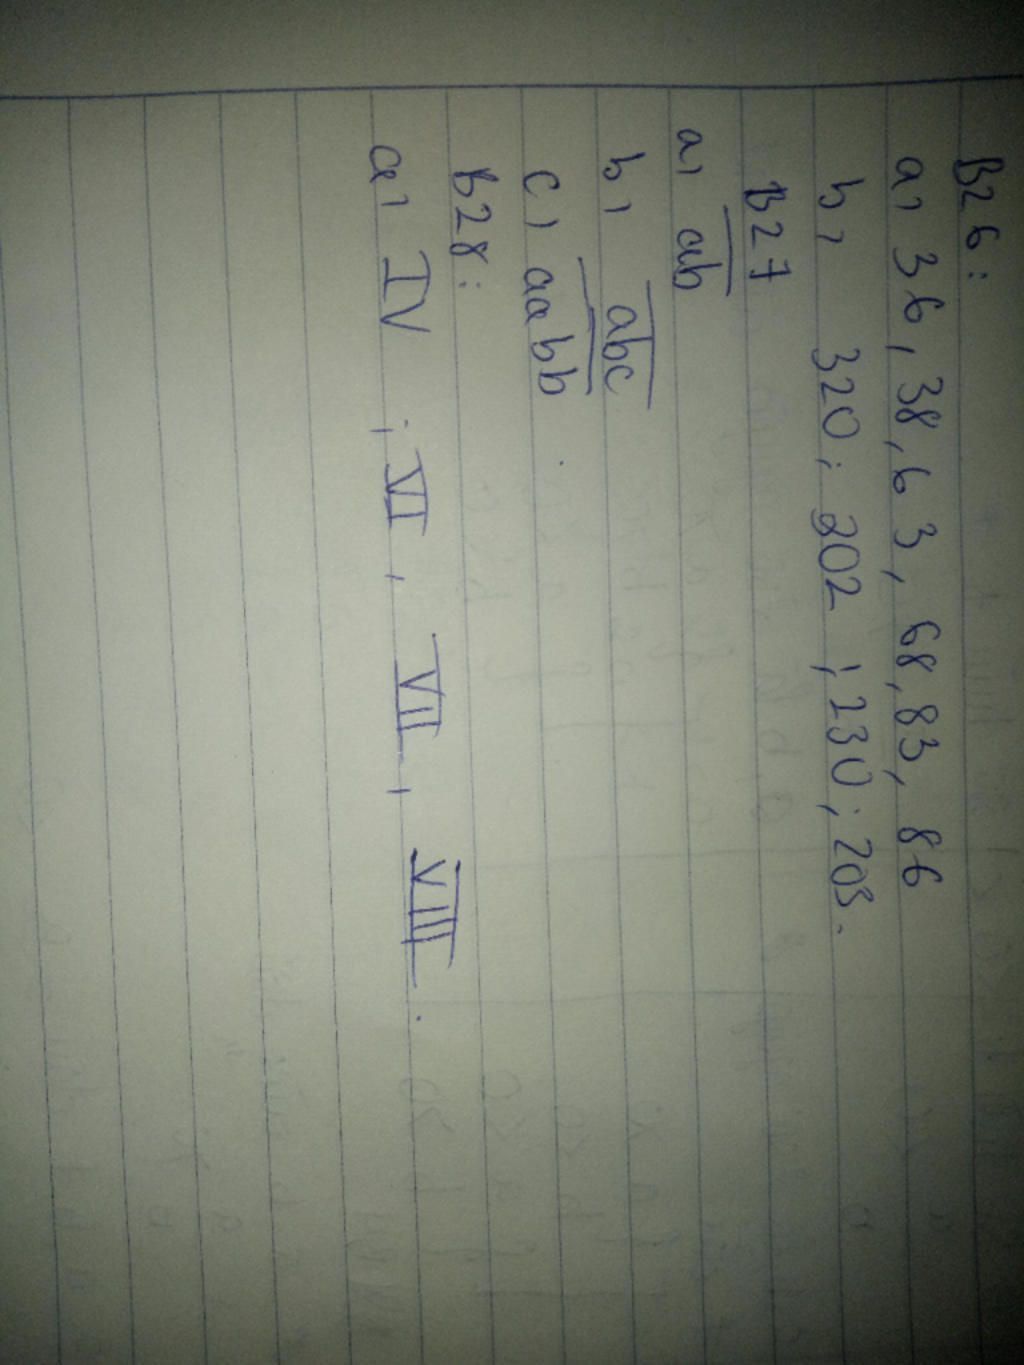 B26:
a, 36, 38, 63, 68, 83, 86
b, 320; 202; 230; 203.
B27
a, ab
b, abc
c, aabb.
B28:
a, IV; VI, VII, VIII.